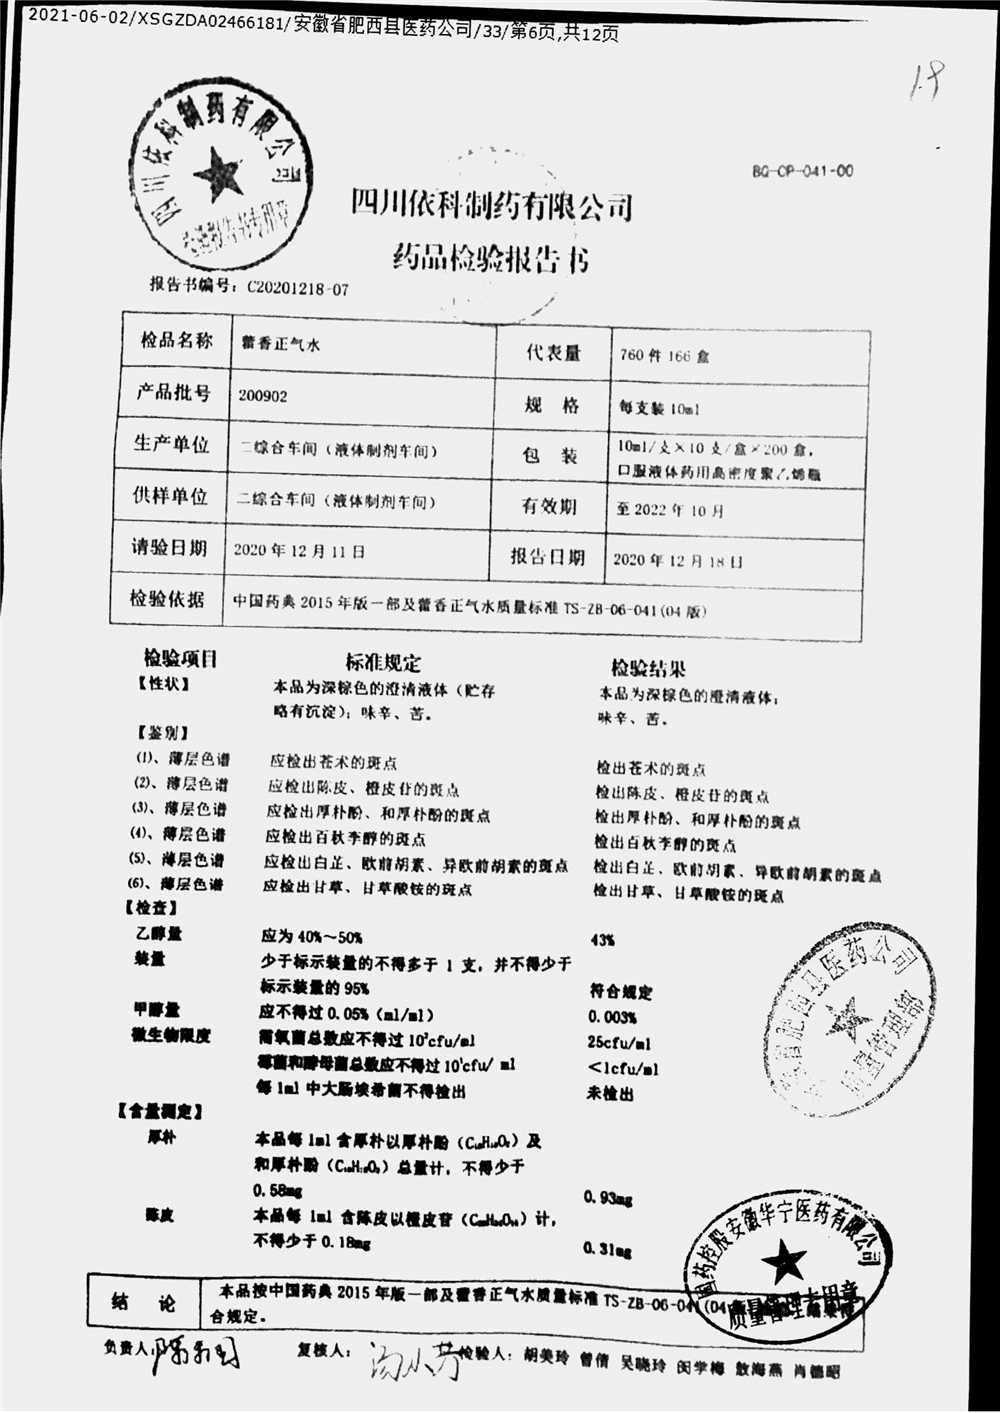 2021-06-02/XSGZDA02466181/安徽省肥西县医药公司/33/第6页,共12页
18
四川依科制药有限公司
BG-CP-041-00
四川依科制药有限公司
药品检验报告书
报告书编号：C20201218-07
检品名称 藿香正气水 代表量 760件166盒
产品批号 200902 规 格 每支装10ml
生产单位 二综合车间（液体制剂车间） 包 装 10ml/支×10支/盒×200盒，
口服液体药用高密度聚乙烯瓶
供样单位 二综合车间（液体制剂车间） 有效期 至2022年10月
请验日期 2020年12月11日 报告日期 2020年12月18日
检验依据 中国药典2015年版一部及藿香正气水质量标准TS-ZB-06-041(04版)
检验项目 标准规定 检验结果
【性状】 本品为深棕色的澄清液体（贮存 本品为深棕色的澄清液体；
略有沉淀）；味辛、苦。 味辛、苦。
【鉴别】
(1)、薄层色谱 应检出苍术的斑点 检出苍术的斑点
(2)、薄层色谱 应检出陈皮、橙皮苷的斑点 检出陈皮、橙皮苷的斑点
(3)、薄层色谱 应检出厚朴酚、和厚朴酚的斑点 检出厚朴酚、和厚朴酚的斑点
(4)、薄层色谱 应检出百秋李醇的斑点 检出百秋李醇的斑点
(5)、薄层色谱 应检出白芷、欧前胡素、异欧前胡素的斑点 检出白芷、欧前胡素、异欧前胡素的斑点
(6)、薄层色谱 应检出甘草、甘草酸铵的斑点 检出甘草、甘草酸铵的斑点
【检查】
乙醇量 应为40%～50% 43%
装量 少于标示装量的不得多于1支，并不得少于
标示装量的95% 符合规定
甲醇量 应不得过0.05%（ml/ml） 0.003%
微生物限度 需氧菌总数应不得过10²cfu/ml 25cfu/ml
霉菌和酵母菌总数应不得过10¹cfu/ ml <1cfu/ml
每1ml中大肠埃希菌不得检出 未检出
【含量测定】
厚朴 本品每1ml含厚朴以厚朴酚（C₁₈H₁₈O₂）及
和厚朴酚（C₁₈H₁₈O₂）总量计，不得少于
0.58mg 0.93mg
陈皮 本品每1ml含陈皮以橙皮苷（C₂₈H₃₄O₁₅）计，
不得少于0.18mg 0.31mg
省肥西县医药公司
质量管理部
国药控股安徽华宁医药有限公司
质量管理专用章
结 论 本品按中国药典2015年版一部及藿香正气水质量标准TS-ZB-06-041(04
合规定。
负责人： 复核人： 检验人：胡美玲 曾倩 吴晓玲 闵学梅 敖海燕 肖德昭